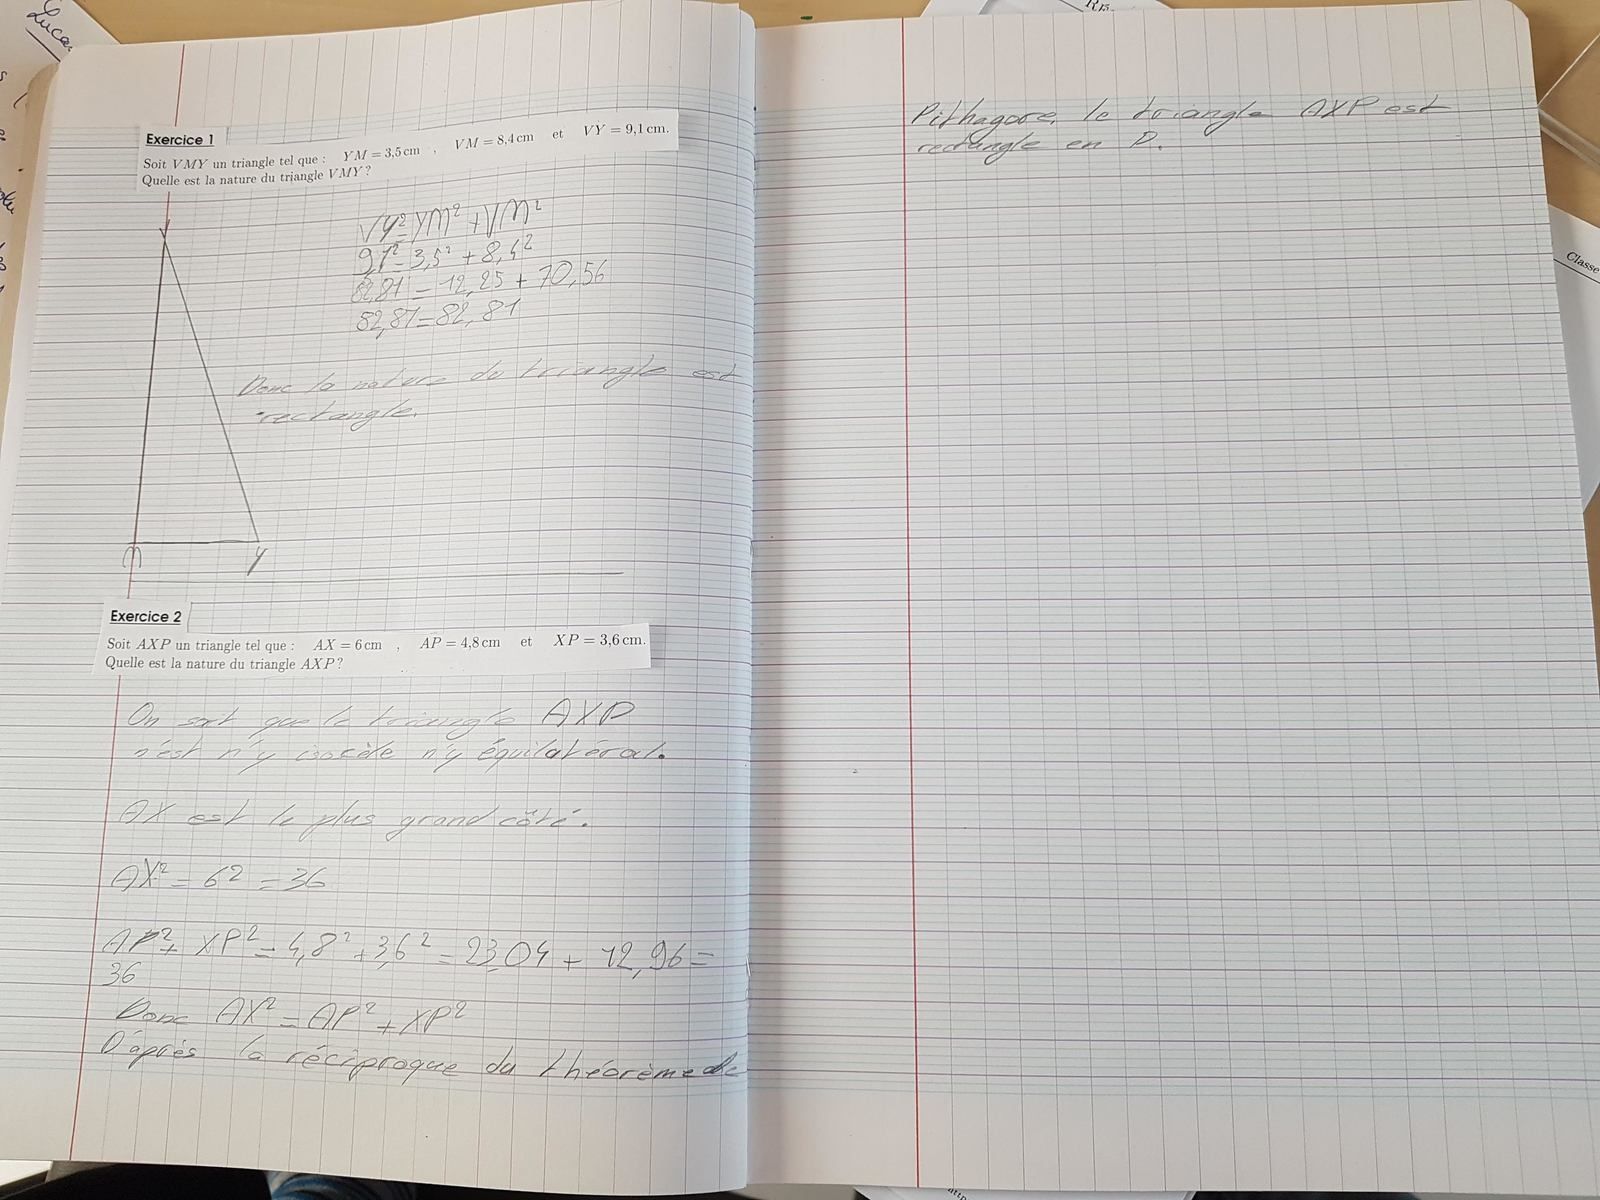 Lucas
Exercice 1
Soit VMY un triangle tel que : YM = 3,5 cm , VM = 8,4 cm et VY = 9,1 cm.
Quelle est la nature du triangle VMY ?
V
VY² = YM² + VM²
9,1² = 3,5² + 8,4²
82,81 = 12,25 + 70,56
82,81 = 82,81
Donc la nature du triangle est
rectangle.
M Y
Exercice 2
Soit AXP un triangle tel que : AX = 6 cm , AP = 4,8 cm et XP = 3,6 cm.
Quelle est la nature du triangle AXP ?
On sait que le triangle AXP
n'est n'y isocèle n'y équilatéral.
AX est le plus grand côté.
AX² = 6² = 36
AP² + XP² = 4,8² + 3,6² = 23,04 + 12,96 =
36
Donc AX² = AP² + XP²
D'après la réciproque du théorème de
Pithagore, le triangle AXP est
rectangle en P.
Classe